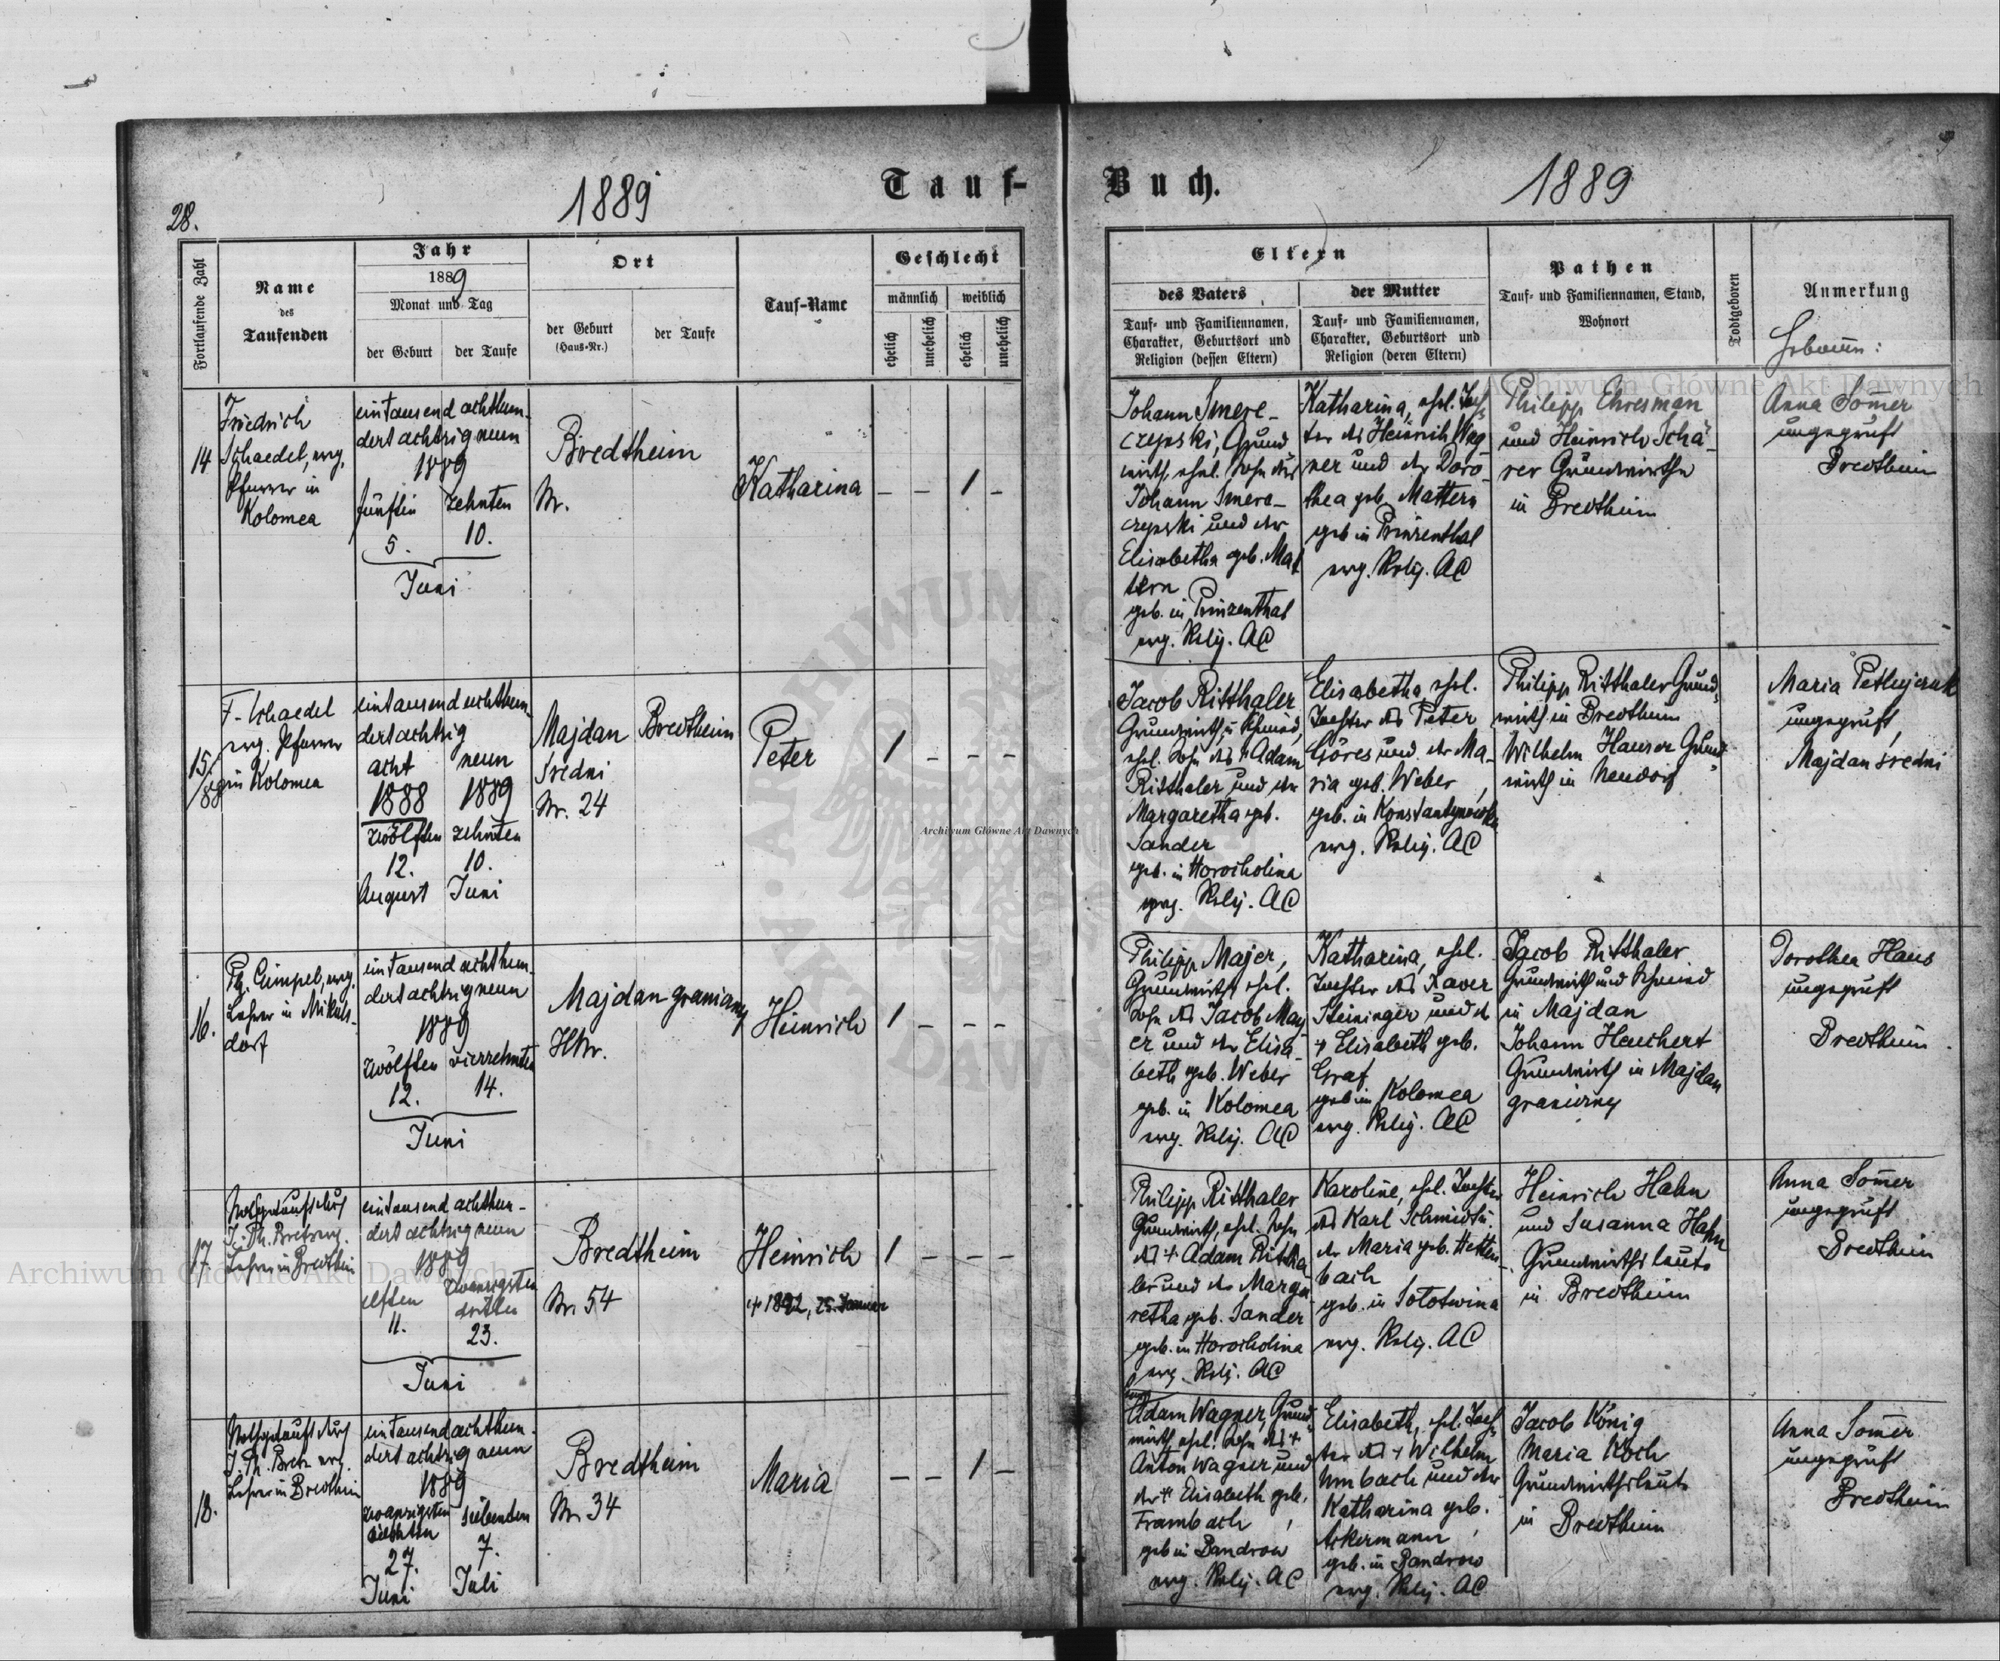 28.
1889
Tauf-
Buch.
1889
Fortlaufende Zahl
Name
des
Taufenden
Jahr
1889
Monat und Tag
der Geburt
der Taufe
Ort
der Geburt
(Haus-Nr.)
der Taufe
Tauf-Name
Geschlecht
männlich
weiblich
ehelich
unehelich
ehelich
unehelich
Eltern
des Vaters
der Mutter
Tauf- und Familiennamen,
Charakter, Geburtsort und
Religion (dessen Eltern)
Tauf- und Familiennamen,
Charakter, Geburtsort und
Religion (deren Eltern)
Pathen
Tauf- und Familiennamen, Stand,
Wohnort
Todtgeboren
Anmerkung
14
Friedrich
Schaedel, evg.
Pfarrer in
Kolomea
eintausend achthun-
dert achtzig neun
1889
fünften
zehnten
5.
10.
Juni
Bredtheim
Nr.
Katharina
– – 1 –
Johann Smere-
czynski, Grund
wirth, ehel. Sohn des
Johann Smere-
czynski und der
Elisabetha geb. Mat
tern
geb. in Prinzenthal
evg. Relig. AC
Katharina, ehel. Toch-
ter des Heinrich Wag
ner und der Doro-
thea geb. Mattern
geb in Prinzenthal
evg. Relig. AC
Philipp Ehresman
und Heinrich Schä-
rer Grundwirthe
in Bredtheim
Anna Somer
ungeprüft
Bredtheim
15/
88
F. Schaedel
evg. Pfarrer
in Kolomea
eintausend achthun-
dert achtzig
acht
neun
1888
1889
zwölften
zehnten
12.
10.
August
Juni
Majdan
Sredni
Nr. 24
Bredtheim
Peter
1 – – –
Jacob Ritthaler
Grundwirth u. Schmied,
ehel. Sohn des + Adam
Ritthaler und der
Margaretha geb.
Sander
geb. in Horocholina
evg. Relig. AC
Elisabetha, ehel.
Tochter des Peter
Göres und der Ma-
ria geb. Weber
geb. in Konstantynowka
evg. Relig. AC
Philipp Ritthaler Grund-
wirth in Bredtheim
Wilhelm Hauser Grund-
wirth in Neudorf
Maria
ungeprüft
Majdan sredni
16.
Ph. Gimpel, evg.
Lehrer in Mikuls-
dorf
eintausend achthun-
dert achtzig neun
1889
zwölften
vierzehnten
12.
14.
Juni
Majdan graniczny
HNr.
Heinrich
1 – – –
Philipp Majer,
Grundwirth, ehel.
Sohn des Jacob May
er und der Elisa-
beth geb. Weber
geb. in Kolomea
evg. Relig. AC
Katharina, ehel.
Tochter des Xaver
Steininger und d
+ Elisabeth geb.
Graf
geb in Kolomea
evg. Relig. AC
Jacob Ritthaler
Grundwirth und Schmied
in Majdan
Johann Heuchert
Grundwirth in Majdan
graniczny
Dorothea Haus
ungeprüft
Bredtheim
17.
Nothgetauft durch
J. Ph. Bretz evg.
Lehrer in Bredtheim
eintausend achthun-
dert achtzig neun
1889
elften
zwanzigsten
dritten
11.
23.
Juni
Bredtheim
Nr. 54
Heinrich
+ 1892, 25. Januar
1 – – –
Philipp Ritthaler
Grundwirth, ehel. Sohn
des + Adam Rittha
ler und der Marga
retha geb. Sander
geb. in Horocholina
evg. Relig. AC
Karoline, ehel. Tochter
des Karl Schmidt u.
der Maria geb. Hetten-
bach
geb. in Solotwina
evg. Relig. AC
Heinrich Hahn
und Susanna Hahn
Grundwirthsleute
in Bredtheim
Anna Somer
ungeprüft
Bredtheim
18.
Nothgetauft durch
J. Ph. Bretz evg.
Lehrer in Bredtheim
eintausend achthun-
dert achtzig neun
1889
zwanzigsten
siebenten
siebenten
27.
7.
Juni
Juli
Bredtheim
Nr. 34
Maria
– – 1 –
Adam Wagner, Grund-
wirth ehel. Sohn des +
Anton Wagner und
der + Elisabeth geb.
Frambach
geb in Bandrow
evg. Relig. AC
Elisabeth, ehel. Toch-
ter des + Wilhelm
Umbach und der
Katharina geb.
Ackermann
geb. in Bandrow
evg. Relig. AC
Jacob König
Maria Koch
Grundwirthsleute
in Bredtheim
Anna Somer
ungeprüft
Bredtheim
Archiwum Główne Akt Dawnych